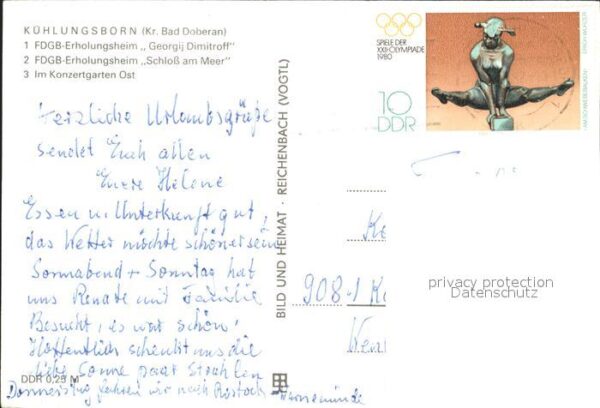 KÜHLUNGSBORN (Kr. Bad Doberan)
1 FDGB-Erholungsheim „Georgij Dimitroff"
2 FDGB-Erholungsheim „Schloß am Meer"
3 Im Konzertgarten Ost
Herzliche Urlaubsgrüße
sendet Euch allen
Eure Helene
Essen u. Unterkunft gut,
das Wetter möchte schöner sein
Sonnabend + Sonntag hat
uns Renate mit Familie
Besucht, es war schön,
Hoffentlich schenkt uns die
liebe Sonne paar Strahlen
Donnerstag fahren wir nach Rostock - Warnemünde
DDR 0,25 M
BILD UND HEIMAT · REICHENBACH (VOGTL)
SPIELE DER
XXII. OLYMPIADE
1980
10
DDR
AM SCHWEBEBALKEN
908-1 K
privacy protection
Datenschutz